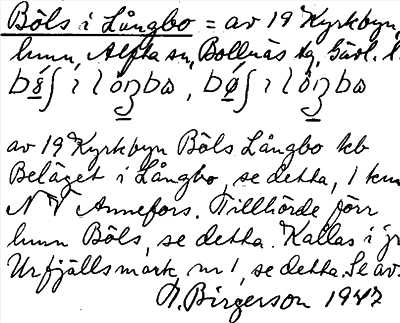 Böls i Långbo = av 19 Kyrkbyn,
hmn, Alfta sn, Bollnäs tg, Gävl. l.
av 19 Kyrkbyn Böls Långbo kb
Beläget i Långbo, se detta, 1 km
NV Annefors. Tillhörde förr
hmn Böls, se detta. Kallas i jr
Urfjällsmark, nr 1, se detta. Se av.
Birgerson 1947